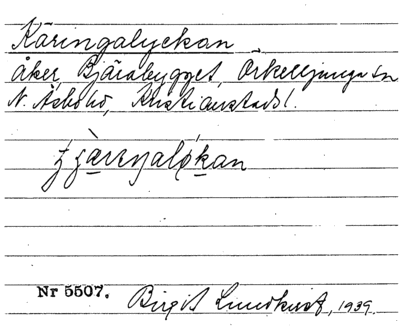 Käringalyckan
Åker, Bjärabygget, Örkelljunga sn
N. Åsbo hd, Kristianstads l.
Nr 5507. Birgit Lundkvist, 1939.